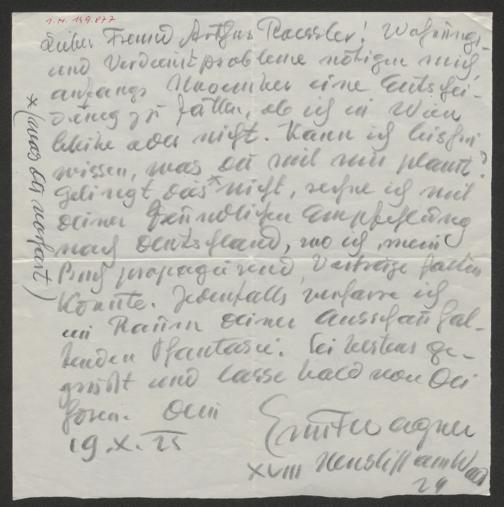 I.N. 149.877
Lieber Freund Arthur Roessler! Wohnungs-
und Verdienstprobleme nötigen mich,
anfangs November eine Entschei-
dung zu fällen, ob ich in Wien
bleibe oder nicht. Kann ich bis hin
wissen, was du mit mir planst?
Gelingt das * nicht, rechne ich mit
deiner freundlichen Empfehlung
nach Deutschland, wo ich mein
Buch propagierend, Vorträge halten
könnte. Jedenfalls verharre ich
im Raum deiner Ausschau hal-
tenden Phantasie. Sei bestens ge-
grüßt und lasse bald von dir
hören. Dein
Ernst Wagner
19.X.25
XVIII Neustift am Wald
24
* (was du vorhast)